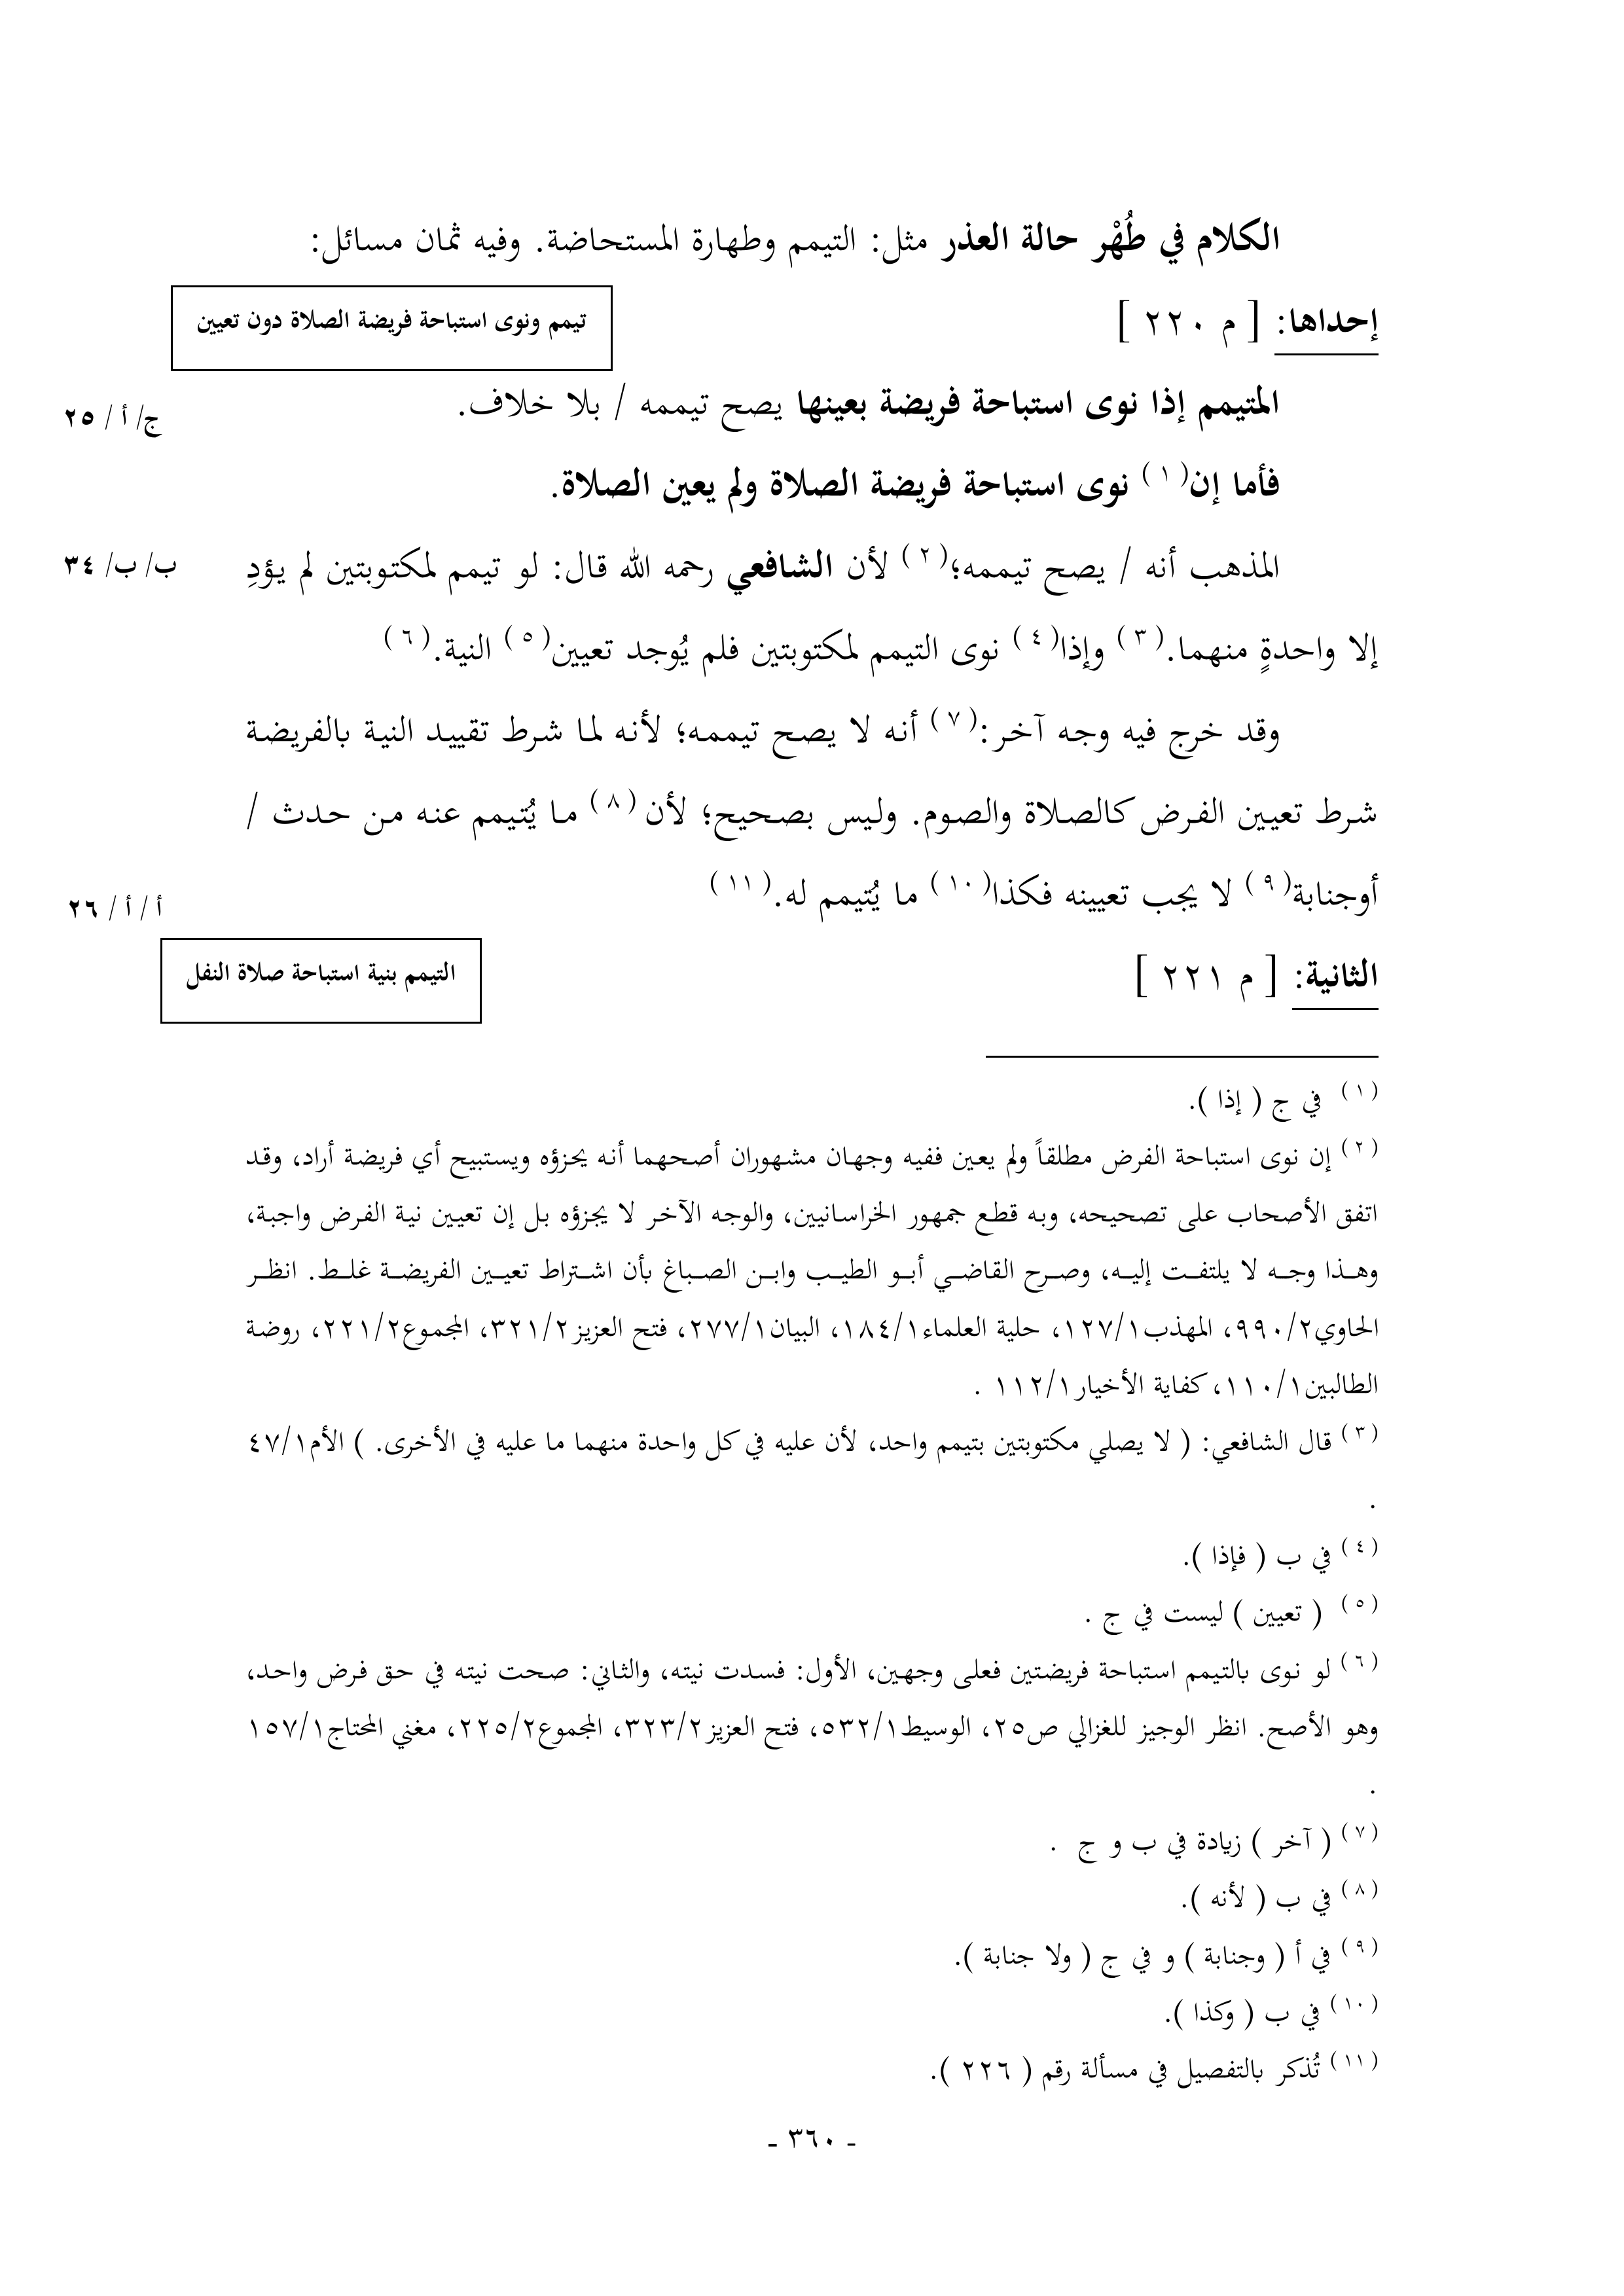 الكلام في طُهْر حالة العذر مثل: التيمم وطهارة المستحاضة. وفيه ثمان مسائل:
إحداها: [ م ٢٢٠ ]
تيمم ونوى استباحة فريضة الصلاة دون تعيين
المتيمم إذا نوى استباحة فريضة بعينها يصح تيممه / بلا خلاف.
ج/ أ / ٢٥
فأما إن(١) نوى استباحة فريضة الصلاة ولم يعين الصلاة.
المذهب أنه / يصح تيممه؛(٢) لأن الشافعي رحمه الله قال: لو تيمم لمكتوبتين لم يؤدِ
ب/ ب/ ٣٤
إلا واحدةٍ منهما.(٣) وإذا(٤) نوى التيمم لمكتوبتين فلم يُوجد تعيين(٥) النية.(٦)
وقد خرج فيه وجه آخر:(٧) أنه لا يصح تيممه؛ لأنه لما شرط تقييد النية بالفريضة
شرط تعيين الفرض كالصلاة والصوم. وليس بصحيح؛ لأن (٨) ما يُتيمم عنه من حدث /
أوجنابة(٩) لا يجب تعيينه فكذا(١٠) ما يُتيمم له.(١١)
أ / أ / ٢٦
الثانية: [ م ٢٢١ ]
التيمم بنية استباحة صلاة النفل
(١) في ج ( إذا ).
(٢) إن نوى استباحة الفرض مطلقاً ولم يعين ففيه وجهان مشهوران أصحهما أنه يجزؤه ويستبيح أي فريضة أراد، وقد
اتفق الأصحاب على تصحيحه، وبه قطع جمهور الخراسانيين، والوجه الآخر لا يجزؤه بل إن تعيين نية الفرض واجبة،
وهذا وجه لا يلتفت إليه، وصرح القاضي أبو الطيب وابن الصباغ بأن اشتراط تعيين الفريضة غلط. انظر
الحاوي٩٩٠/٢، المهذب١٢٧/١، حلية العلماء١٨٤/١، البيان٢٧٧/١، فتح العزيز٣٢١/٢، المجموع٢٢١/٢، روضة
الطالبين١١٠/١، كفاية الأخيار١١٢/١ .
(٣) قال الشافعي: ( لا يصلي مكتوبتين بتيمم واحد، لأن عليه في كل واحدة منهما ما عليه في الأخرى. ) الأم٤٧/١
.
(٤) في ب ( فإذا ).
(٥) ( تعيين ) ليست في ج .
(٦) لو نوى بالتيمم استباحة فريضتين فعلى وجهين، الأول: فسدت نيته، والثاني: صحت نيته في حق فرض واحد،
وهو الأصح. انظر الوجيز للغزالي ص٢٥، الوسيط٥٣٢/١، فتح العزيز٣٢٣/٢، المجموع٢٢٥/٢، مغني المحتاج١٥٧/١
.
(٧) ( آخر ) زيادة في ب و ج .
(٨) في ب ( لأنه ).
(٩) في أ ( وجنابة ) و في ج ( ولا جنابة ).
(١٠) في ب ( وكذا ).
(١١) تُذكر بالتفصيل في مسألة رقم ( ٢٢٦ ).
- ٣٦٠ -